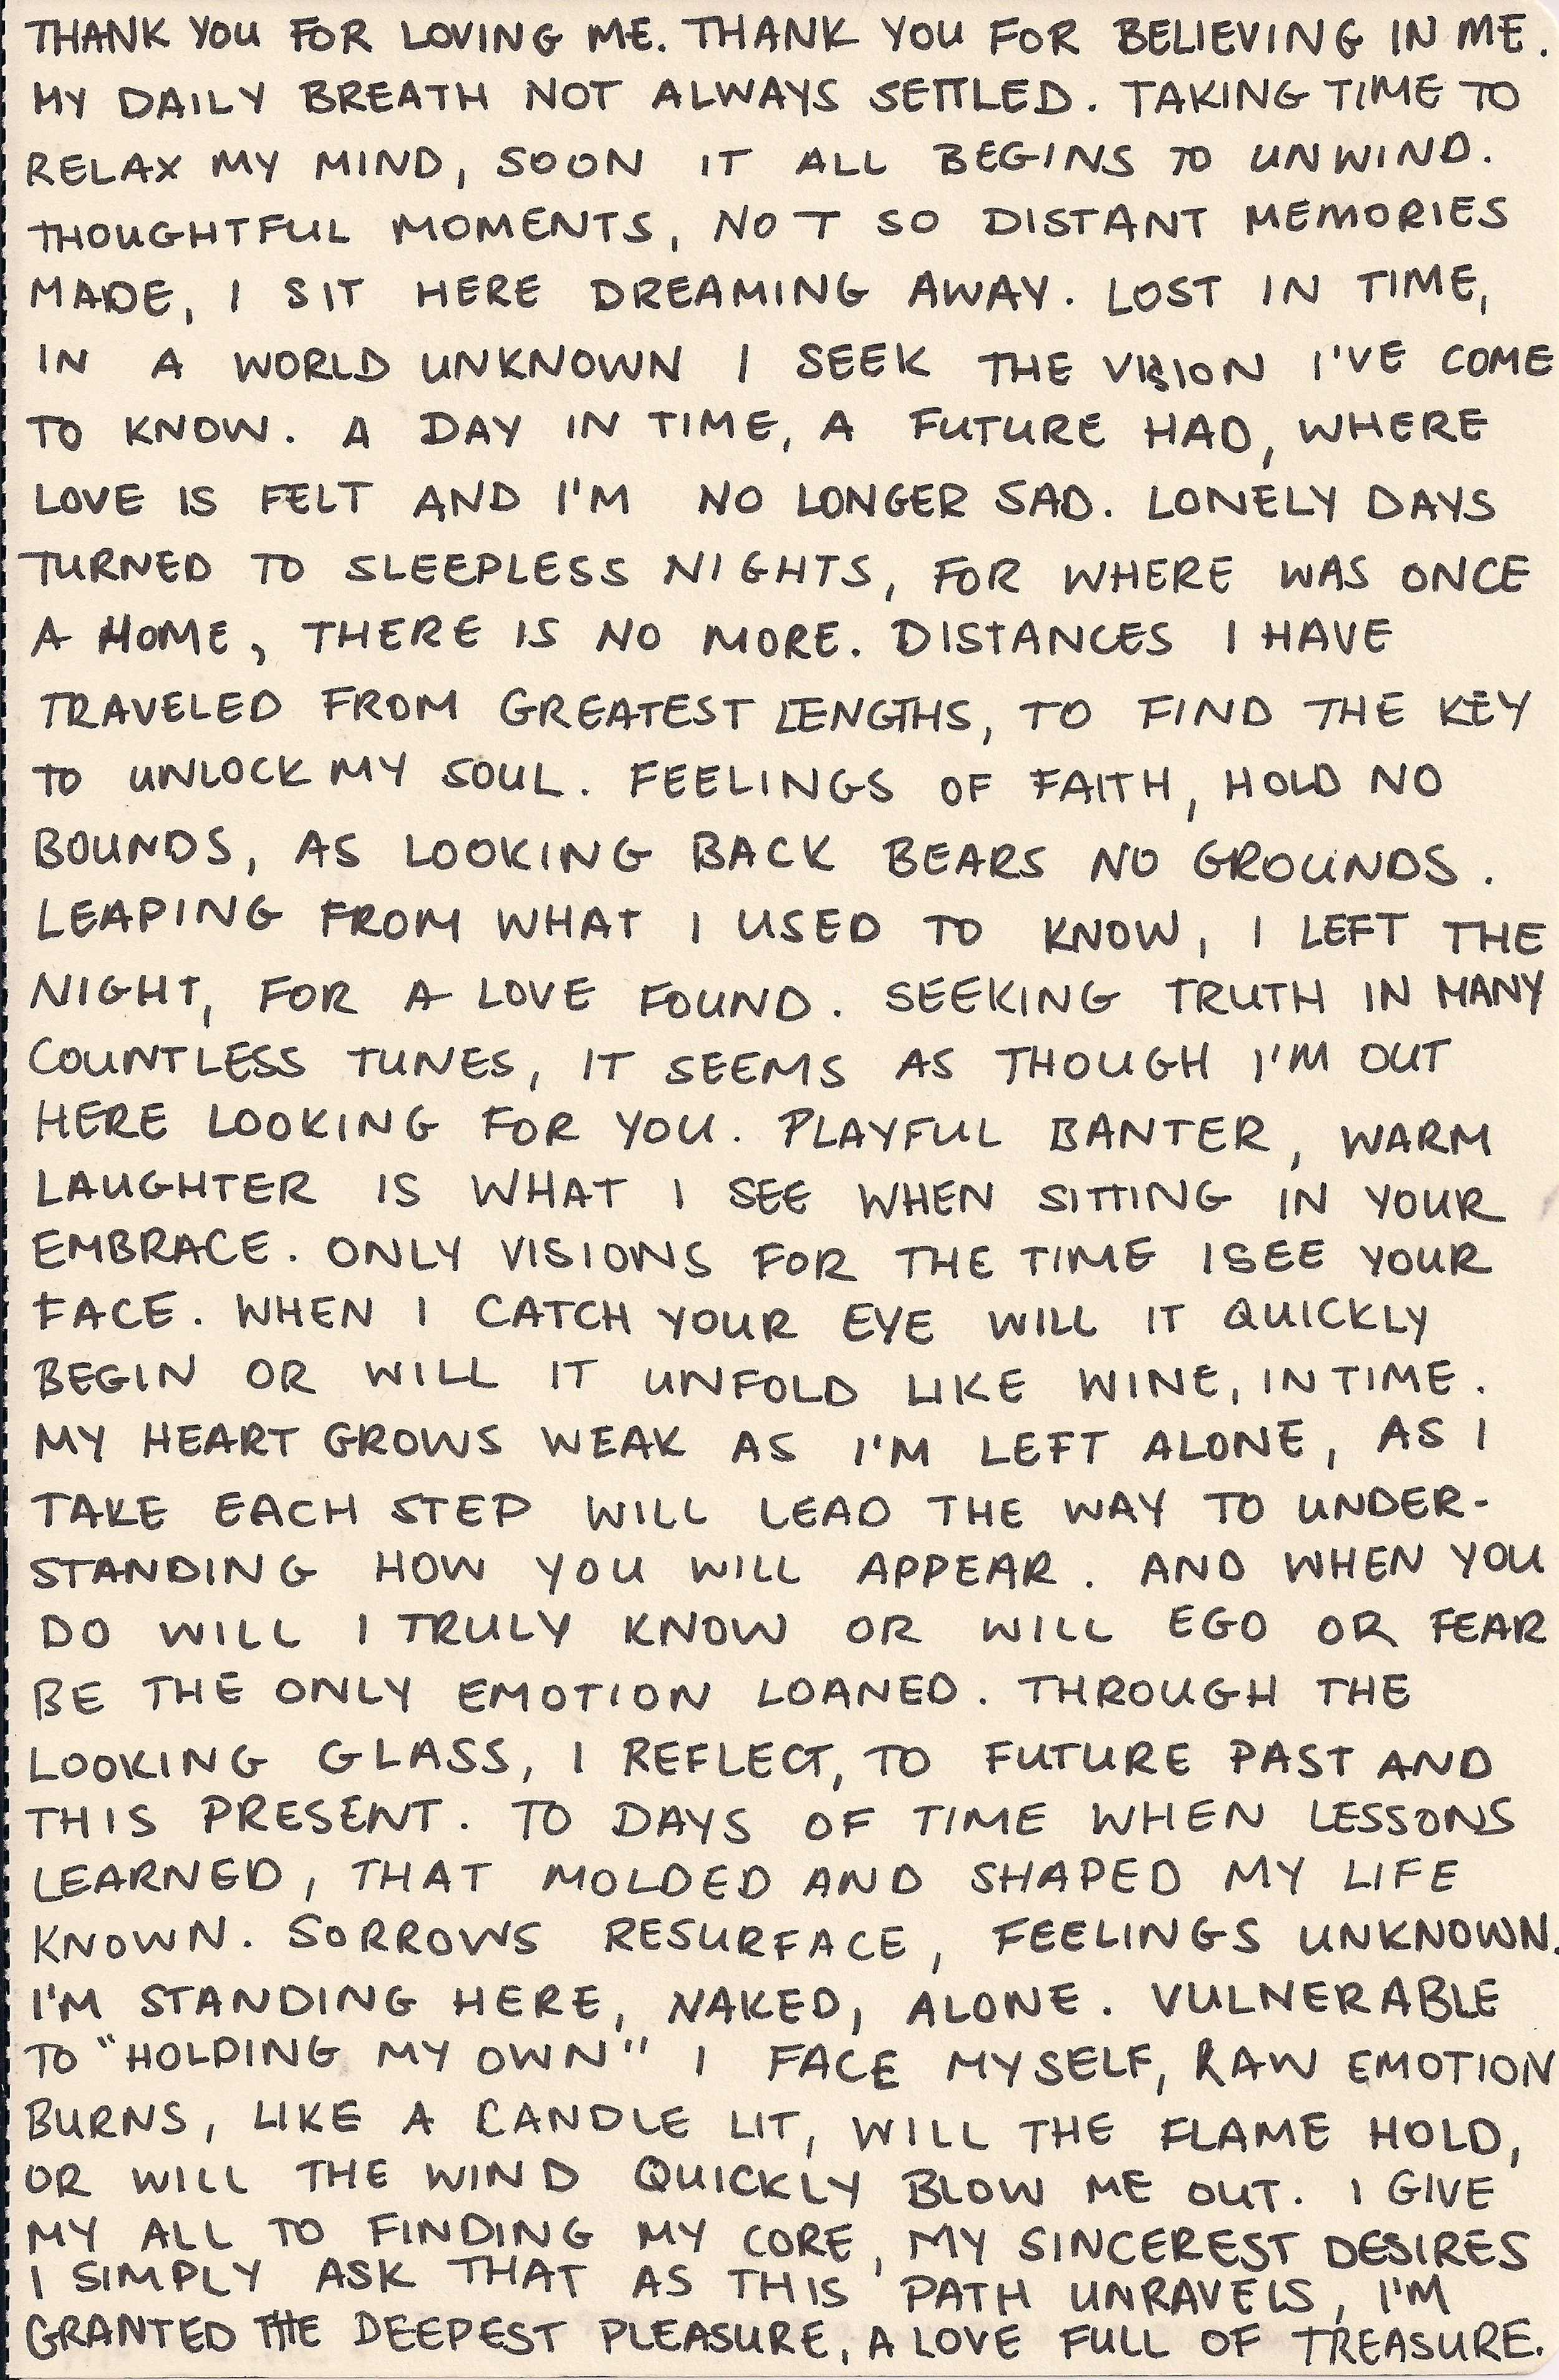 THANK YOU FOR LOVING ME. THANK YOU FOR BELIEVING IN ME.
MY DAILY BREATH NOT ALWAYS SETTLED. TAKING TIME TO
RELAX MY MIND, SOON IT ALL BEGINS TO UNWIND.
THOUGHTFUL MOMENTS, NOT SO DISTANT MEMORIES
MADE, I SIT HERE DREAMING AWAY. LOST IN TIME,
IN A WORLD UNKNOWN I SEEK THE VISION I'VE COME
TO KNOW. A DAY IN TIME, A FUTURE HAD, WHERE
LOVE IS FELT AND I'M NO LONGER SAD. LONELY DAYS
TURNED TO SLEEPLESS NIGHTS, FOR WHERE WAS ONCE
A HOME, THERE IS NO MORE. DISTANCES I HAVE
TRAVELED FROM GREATEST LENGTHS, TO FIND THE KEY
TO UNLOCK MY SOUL. FEELINGS OF FAITH, HOLD NO
BOUNDS, AS LOOKING BACK BEARS NO GROUNDS.
LEAPING FROM WHAT I USED TO KNOW, I LEFT THE
NIGHT, FOR A LOVE FOUND. SEEKING TRUTH IN MANY
COUNTLESS TUNES, IT SEEMS AS THOUGH I'M OUT
HERE LOOKING FOR YOU. PLAYFUL BANTER, WARM
LAUGHTER IS WHAT I SEE WHEN SITTING IN YOUR
EMBRACE. ONLY VISIONS FOR THE TIME I SEE YOUR
FACE. WHEN I CATCH YOUR EYE WILL IT QUICKLY
BEGIN OR WILL IT UNFOLD LIKE WINE, IN TIME.
MY HEART GROWS WEAK AS I'M LEFT ALONE, AS I
TAKE EACH STEP WILL LEAD THE WAY TO UNDER-
STANDING HOW YOU WILL APPEAR. AND WHEN YOU
DO WILL I TRULY KNOW OR WILL EGO OR FEAR
BE THE ONLY EMOTION LOANED. THROUGH THE
LOOKING GLASS, I REFLECT, TO FUTURE PAST AND
THIS PRESENT. TO DAYS OF TIME WHEN LESSONS
LEARNED, THAT MOLDED AND SHAPED MY LIFE
KNOWN. SORROWS RESURFACE, FEELINGS UNKNOWN.
I'M STANDING HERE, NAKED, ALONE. VULNERABLE
TO "HOLDING MY OWN" I FACE MYSELF, RAW EMOTION
BURNS, LIKE A CANDLE LIT, WILL THE FLAME HOLD,
OR WILL THE WIND QUICKLY BLOW ME OUT. I GIVE
MY ALL TO FINDING MY CORE, MY SINCEREST DESIRES
I SIMPLY ASK THAT AS THIS PATH UNRAVELS, I'M
GRANTED THE DEEPEST PLEASURE, A LOVE FULL OF TREASURE.